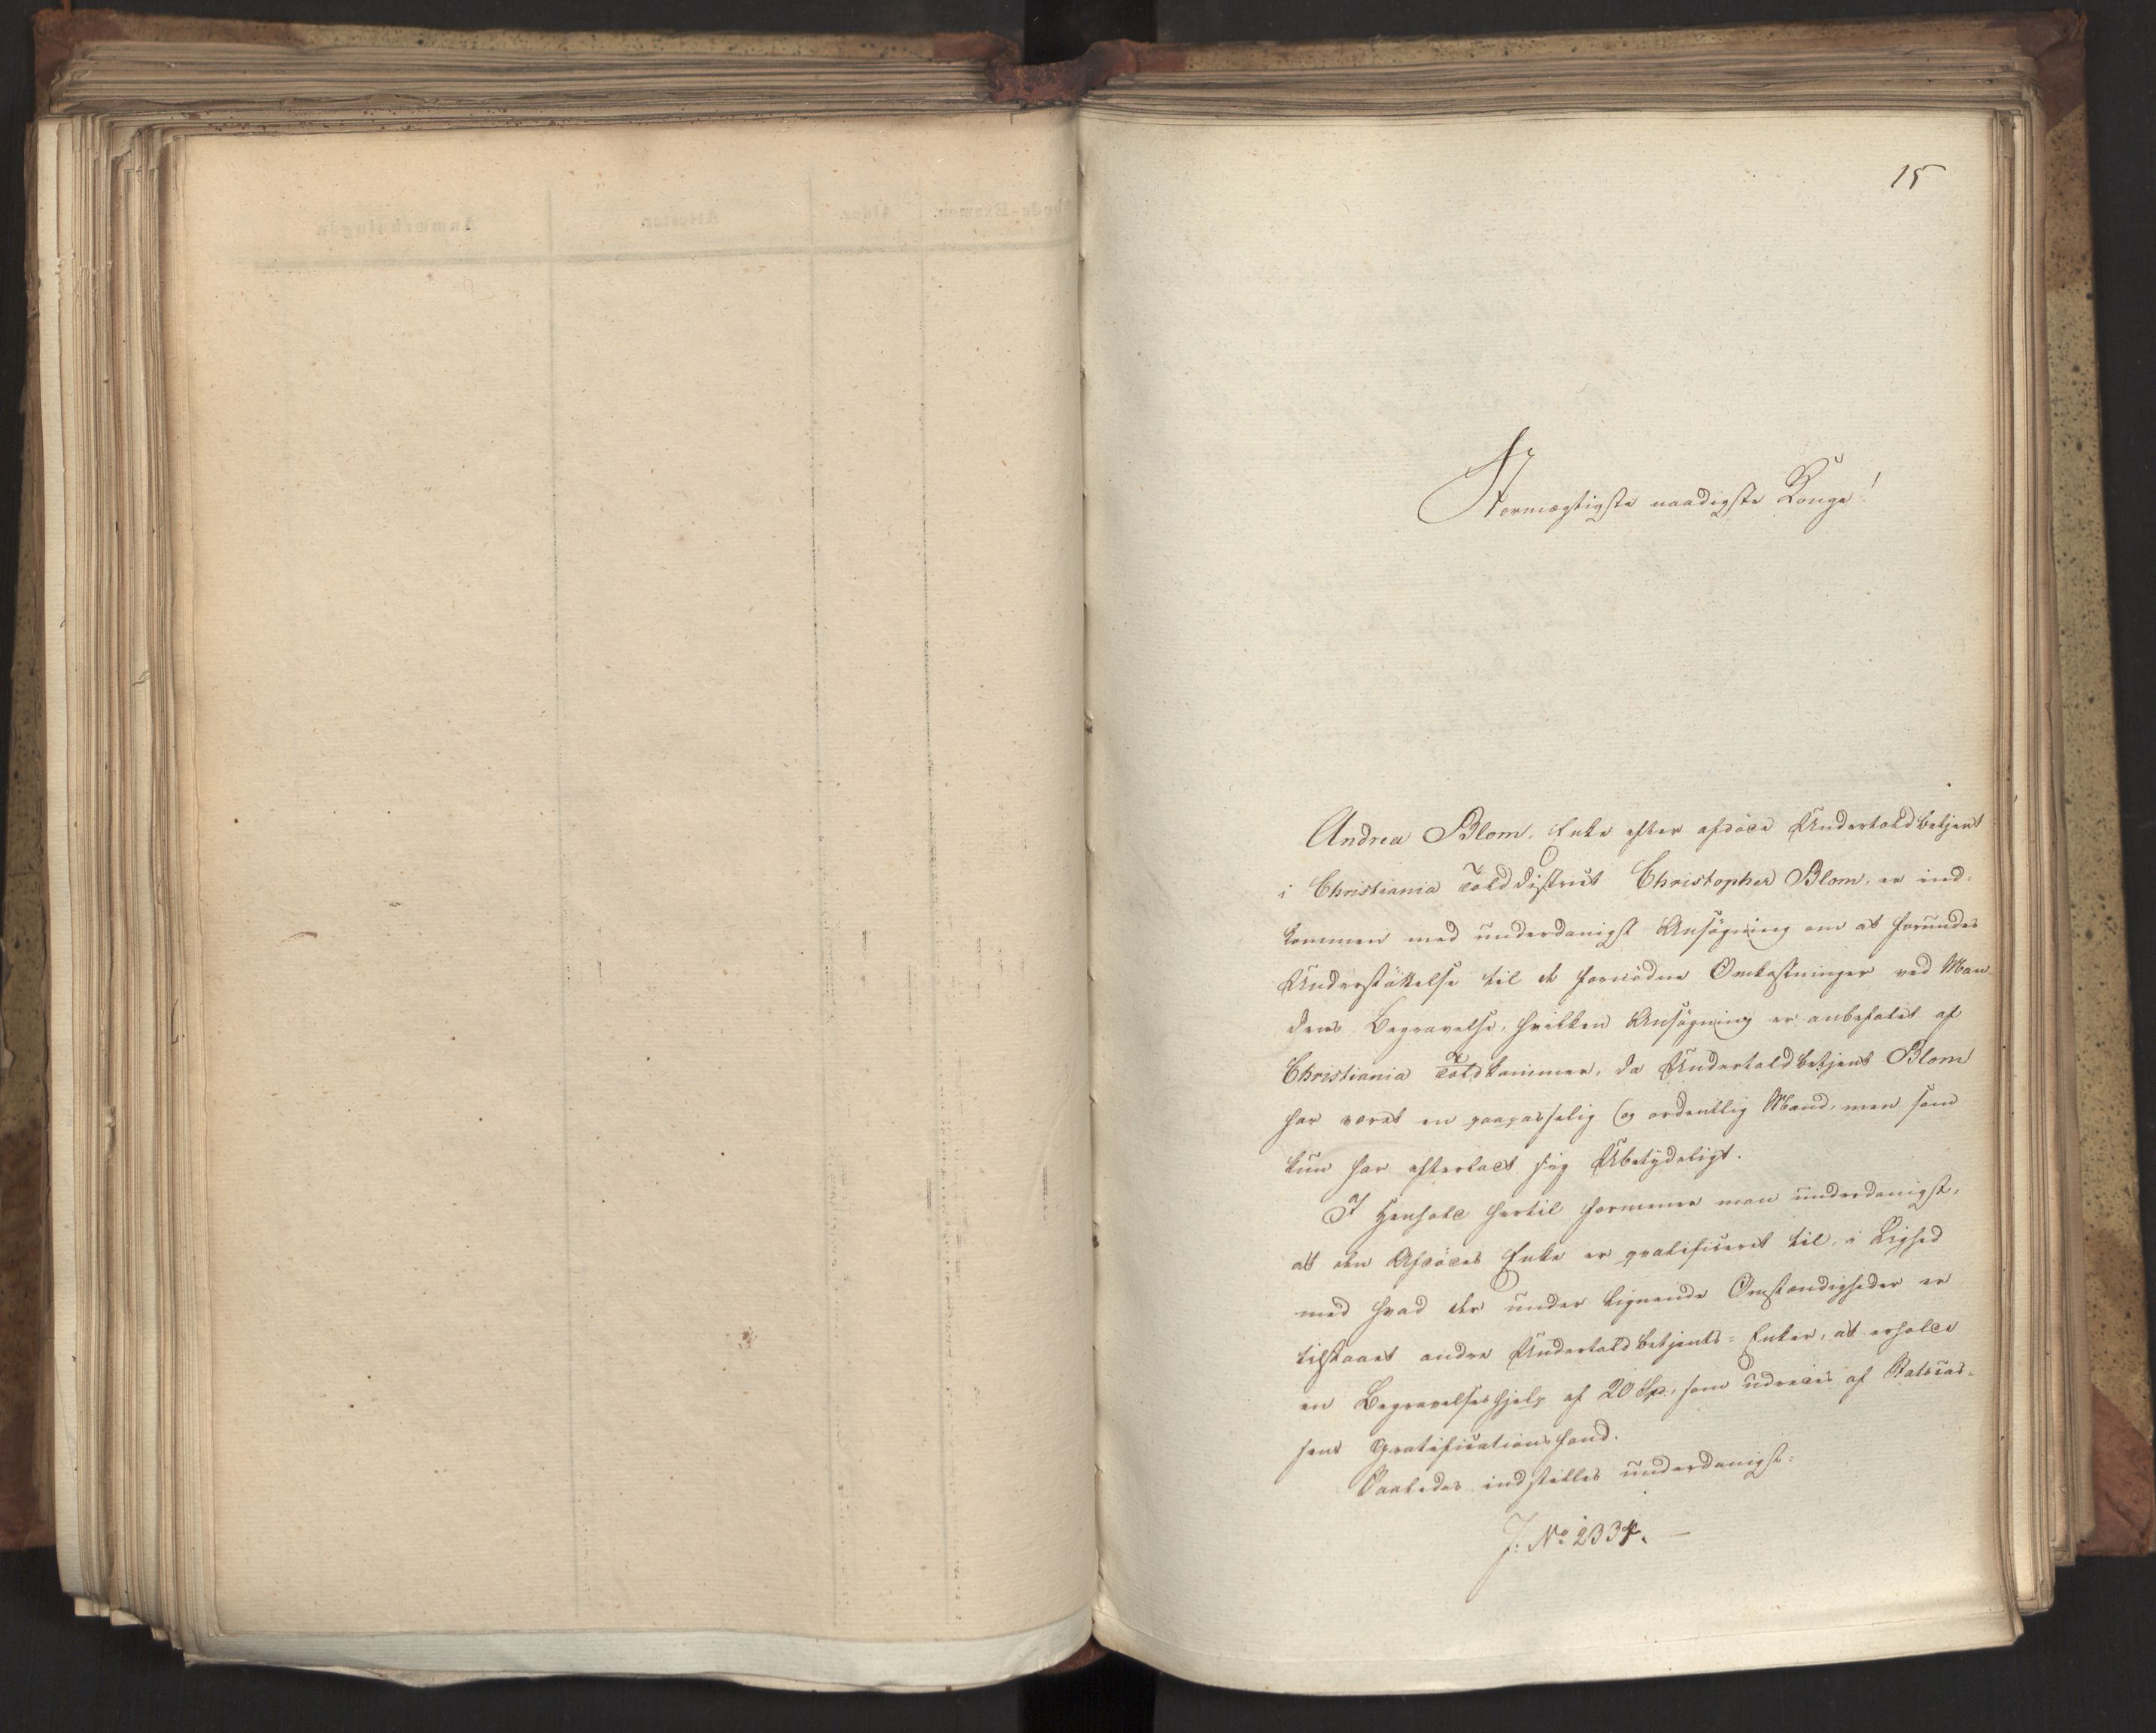 15
Stormægtigste naadigste Konge!
Andrea Blom, Enke efter afdøde Undertoldbetjent
i Christiania Tolddistrict Christopher Blom, er ind-
kommen med underdanigst Ansøgning om at forundes
Understøttelse til de fornødne Omkostninger ved Man-
dens Begravelse, hvilken Ansøgning er anbefalet af
Christiania Toldkammer, da Undertoldbetjent Blom
har været en paapasselig og ordentlig Mand, men som
kun har efterladt sig Ubetydeligt.
I Henhold hertil formener man underdanigst,
at den Afdødes Enke er qvalificeret til, i Lighed
med hvad der under lignende Omstændigheder er
tilstaaet andre Undertoldbetjents-Enker, at erholde
en Begravelseshjelp af 20 Spd., som udredes af Statscas-
sens Gratificationsfond.
Saaledes indstilles underdanigst:
J. No 2334.